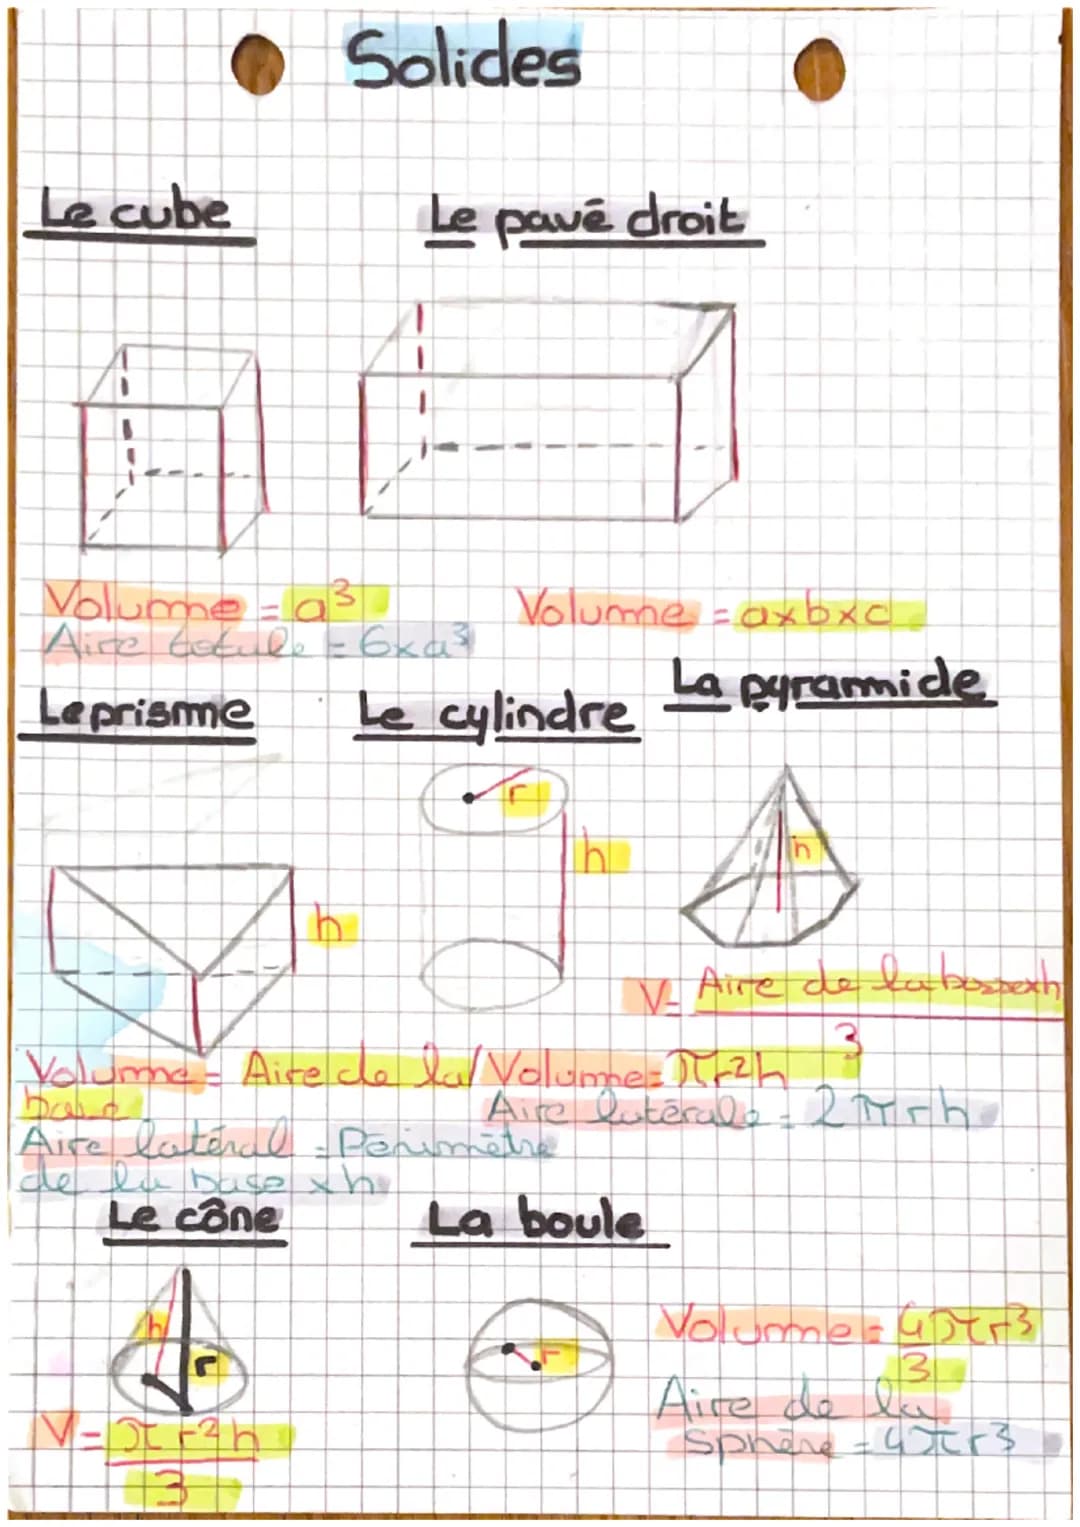 Solides
Le cube
Le pavé droit
Volume = a³
Volume = axbxc
Aire totale = 6xa³
La pyramide
Le prisme
Le cylindre
r
h
h
h
V = Aire de la base x h
3
Volume = Aire de la
base
Volume = πr²h
Aire latérale = 2πrh
Aire latéral = Périmètre
de la base x h
Le cône
La boule
h
r
r
Volume = 4πr³
3
Aire de la
sphère = 4πr³
V = πr²h
3